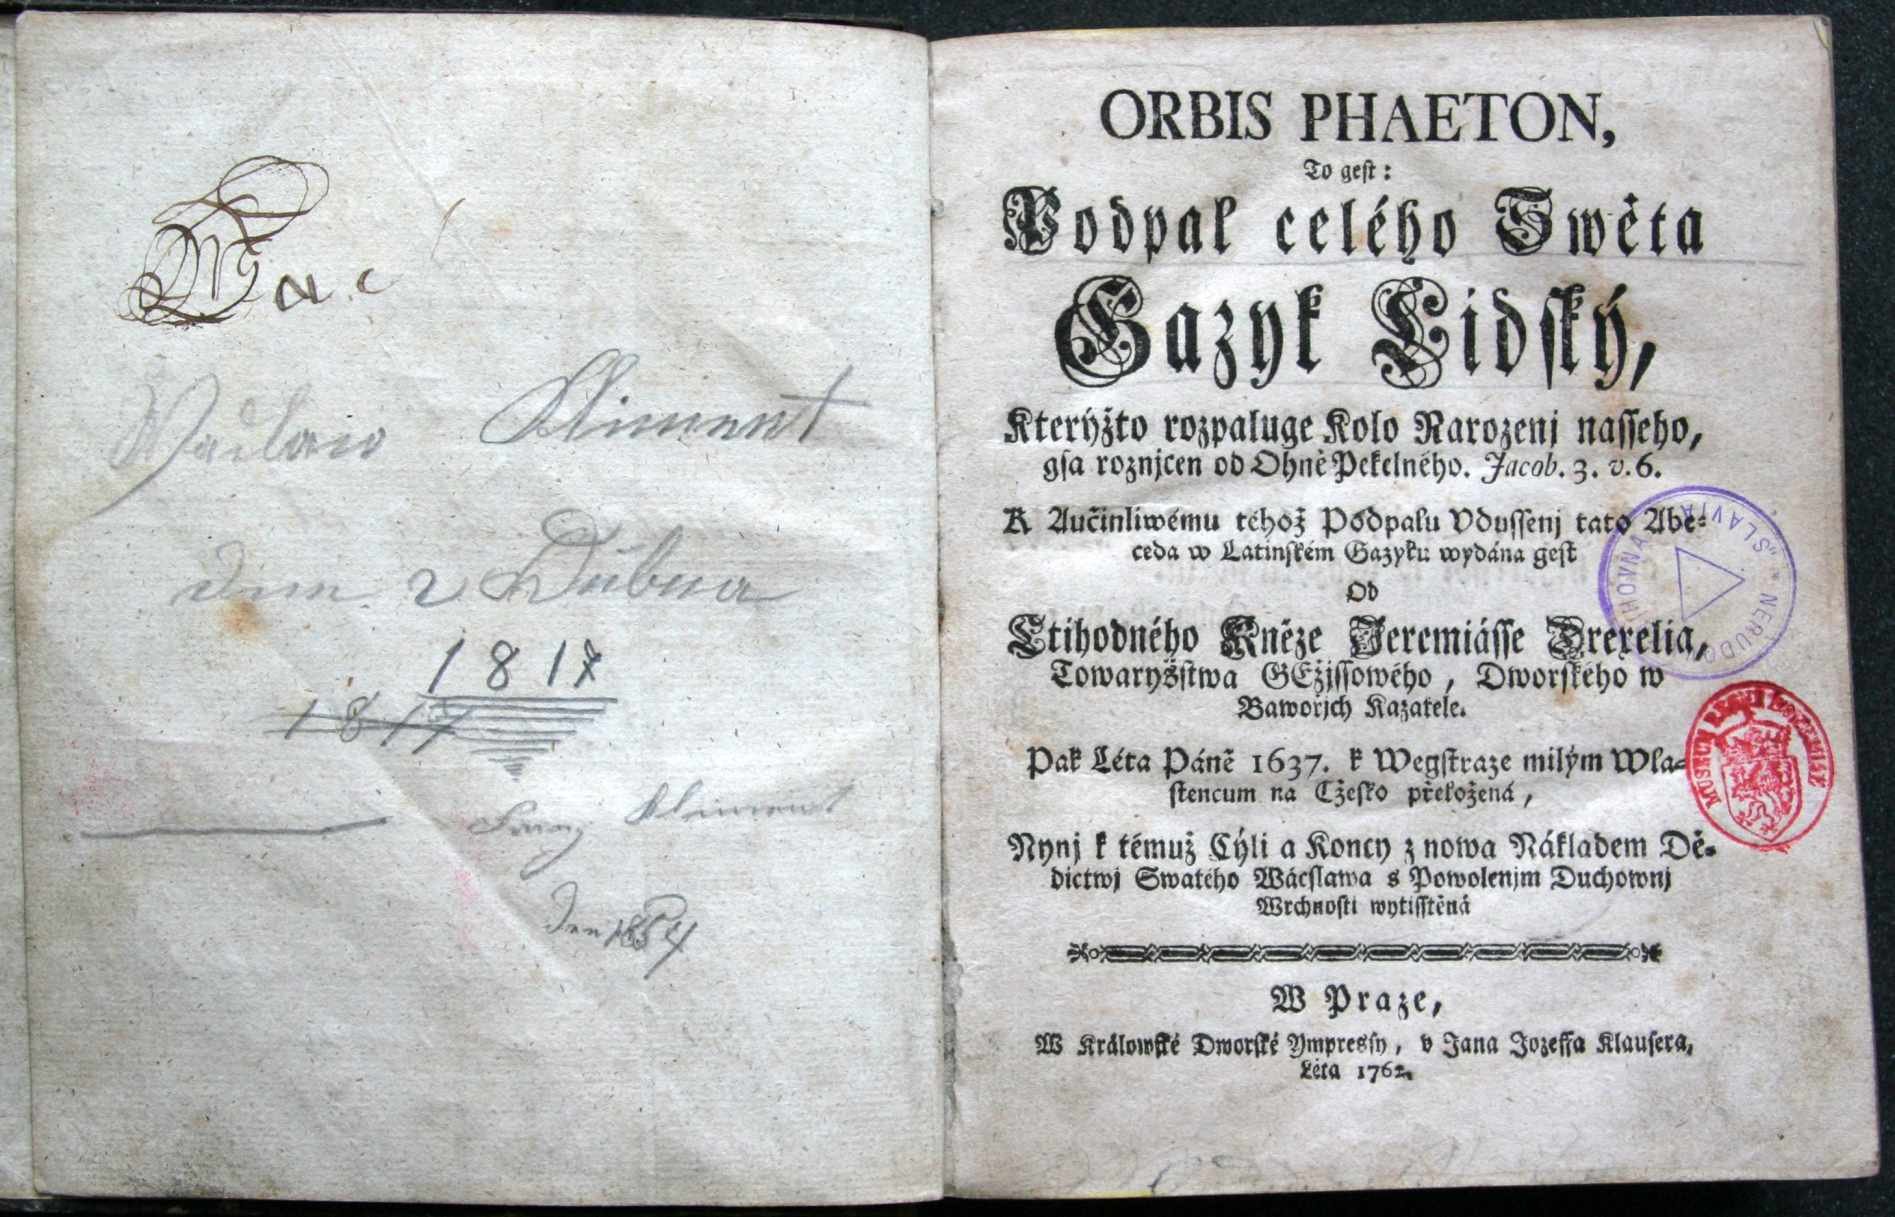 Wac
Waclaw Kliment
dem 2 Dubna
1817
1817
Kliment
den 1854
ORBIS PHAETON,
To gest:
Podpal celého Swěta
Gazyk Lidský,
Kterýžto rozpaluge Kolo Narozenj nasseho,
gsa roznjcen od Ohně Pekelného. Jacob. 3. v. 6.
K Aučinliwému téhož Podpalu Vdussenj tato Abe-
ceda w Latinském Gazyku wydána gest
Od
Ctihodného Kněze Jeremiásse Drexelia,
Towaryšstwa GEžissowého, Dworského w
Baworjch Kazatele.
Pak Léta Páně 1637. k Wegstraze milým Wla-
stencum na Cžesko přeložená,
Nynj k témuž Cýli a Koncy z nowa Nákladem Dě-
dictwj Swatého Wácslawa s Powolenjm Duchownj
Wrchnosti wytisstěná
W Praze,
W Králowské Dworské Ympressy, v Jana Jozeffa Klausera,
Léta 1762.
"SLAVIA"
MUSEUM REGNI BOHEMIAE